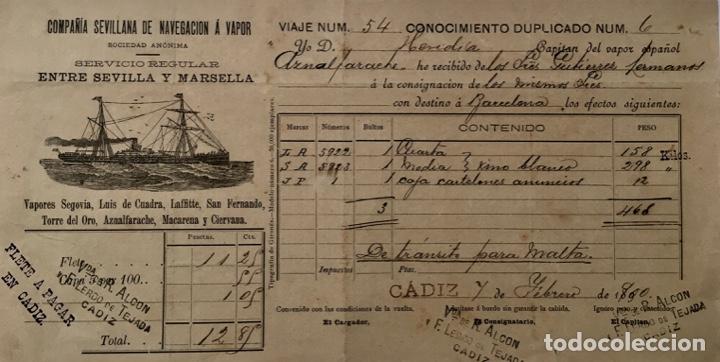 COMPAÑÍA SEVILLANA DE NAVEGACION Á VAPOR
SOCIEDAD ANÓNIMA
SERVICIO REGULAR
ENTRE SEVILLA Y MARSELLA
Vapores Segovia, Luis de Cuadra, Laffitte, San Fernando,
Torre del Oro, Aznalfarache, Macarena y Ciervana.
Pesetas. Cts.
Flete 11 25
5 por 100.. 55
1 05
Total. 12 85
FLETE A PAGAR
EN CADIZ.
Vda DE R. ALCON
Y F. LERDO DE TEJADA
CADIZ
Tipografía de Gironés.—Modelo número 4.—20,000 ejemplares.
VIAJE NUM. 54 CONOCIMIENTO DUPLICADO NUM. 6
Yo D. Heredia Capitan del vapor español
Aznalfarache he recibido de los Sres Gutierrez hermanos
á la consignacion de los mismos Sres
con destino á Barcelona los efectos siguientes:
Marcas Números Bultos CONTENIDO PESO
1 Cuarta 158 Kilos.
1 Media Vino blanco 298 "
1 caja cartelones anuncios 12
3 468
De tránsito para Malta.
Impuestos Ptas.
CÁDIZ 7 de Febrero de 1890
Convenido con las condiciones de la vuelta.
Admítase á bordo sin garantir la cabida.
Ignoro peso y contenido
El Cargador,
El Consignatario,
El Capitan,
Vda DE R. ALCON
Y F. LERDO DE TEJADA
CADIZ
Vda DE R. ALCON
Y F. LERDO DE TEJADA
CADIZ
todocoleccion